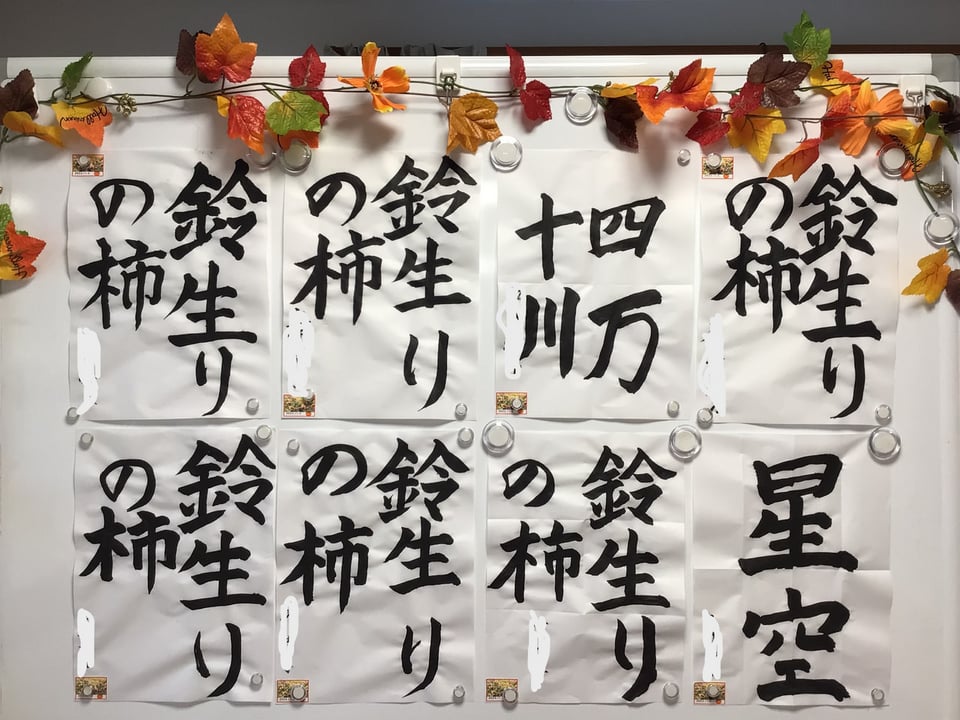 鈴生り
の柿
鈴生り
の柿
四万
十川
鈴生り
の柿
鈴生り
の柿
鈴生り
の柿
鈴生り
の柿
星空